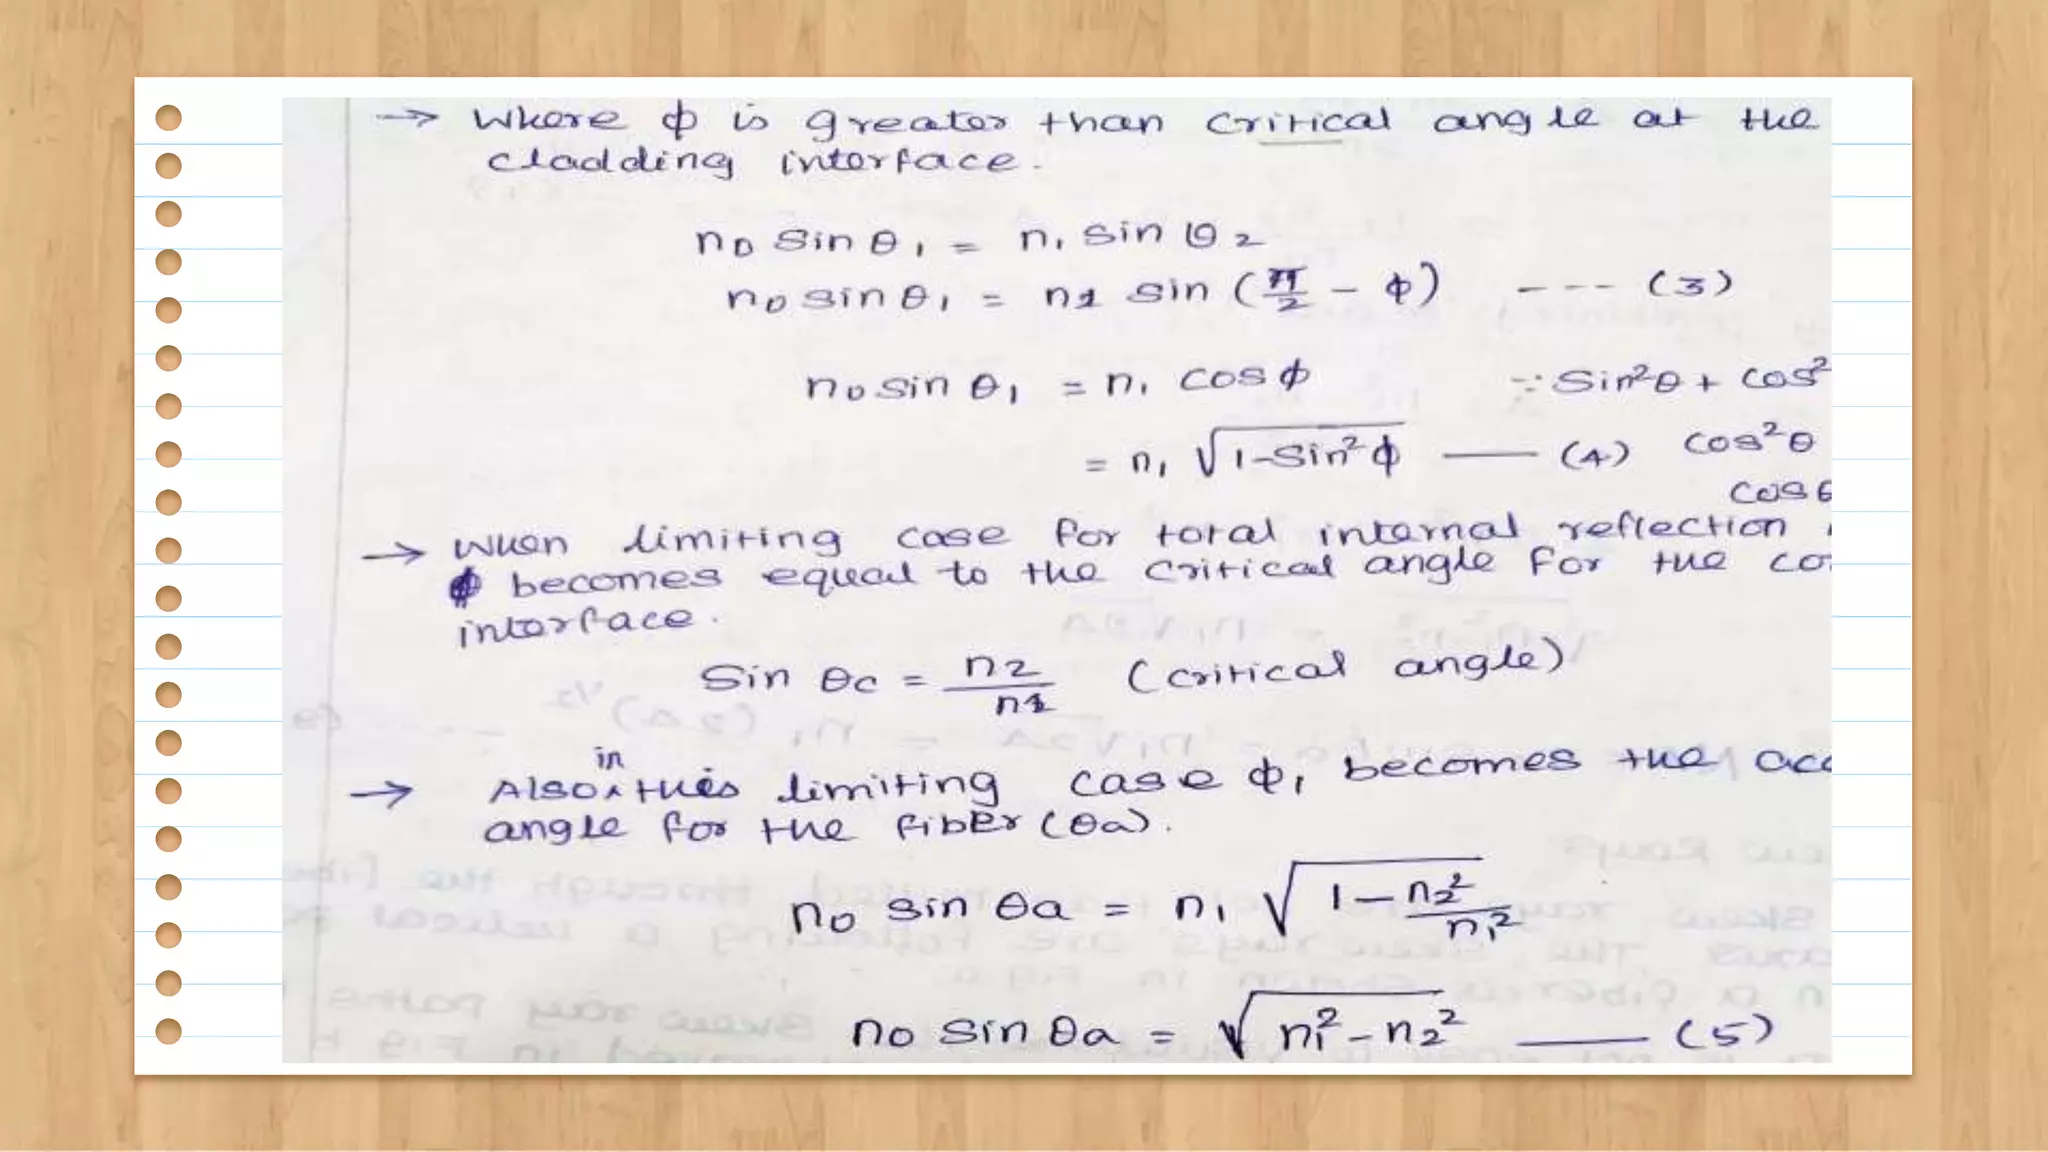 → Where ϕ is greater than critical angle at the
cladding interface.
n0 sin θ1 = n1 sin θ2
n0 sin θ1 = n1 sin (π/2 − ϕ) --- (3)
n0 sin θ1 = n1 cos ϕ ∵ sin²θ + cos²
= n1 √1−sin²ϕ — (4) cos²θ
cos θ
→ When limiting case for total internal reflection
ϕ becomes equal to the critical angle for the co
interface.
sin θc = n2/n1 (critical angle)
→ Also in this limiting case ϕ1 becomes the acc
angle for the fiber (θa).
n0 sin θa = n1 √1 − n2²/n1²
n0 sin θa = √n1² − n2² — (5)